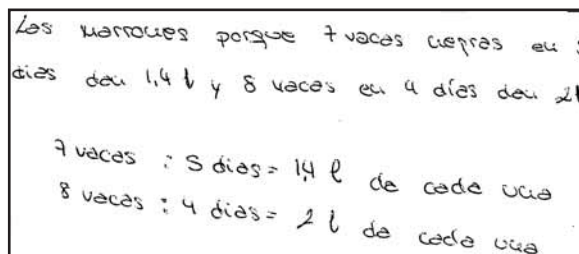 Las marrones porque 7 vacas negras en 5
dias dan 1,4 l y 8 vacas en 4 días dan 2l
7 vacas : 5 dias = 1,4 l de cada una
8 vacas : 4 dias = 2 l de cada una